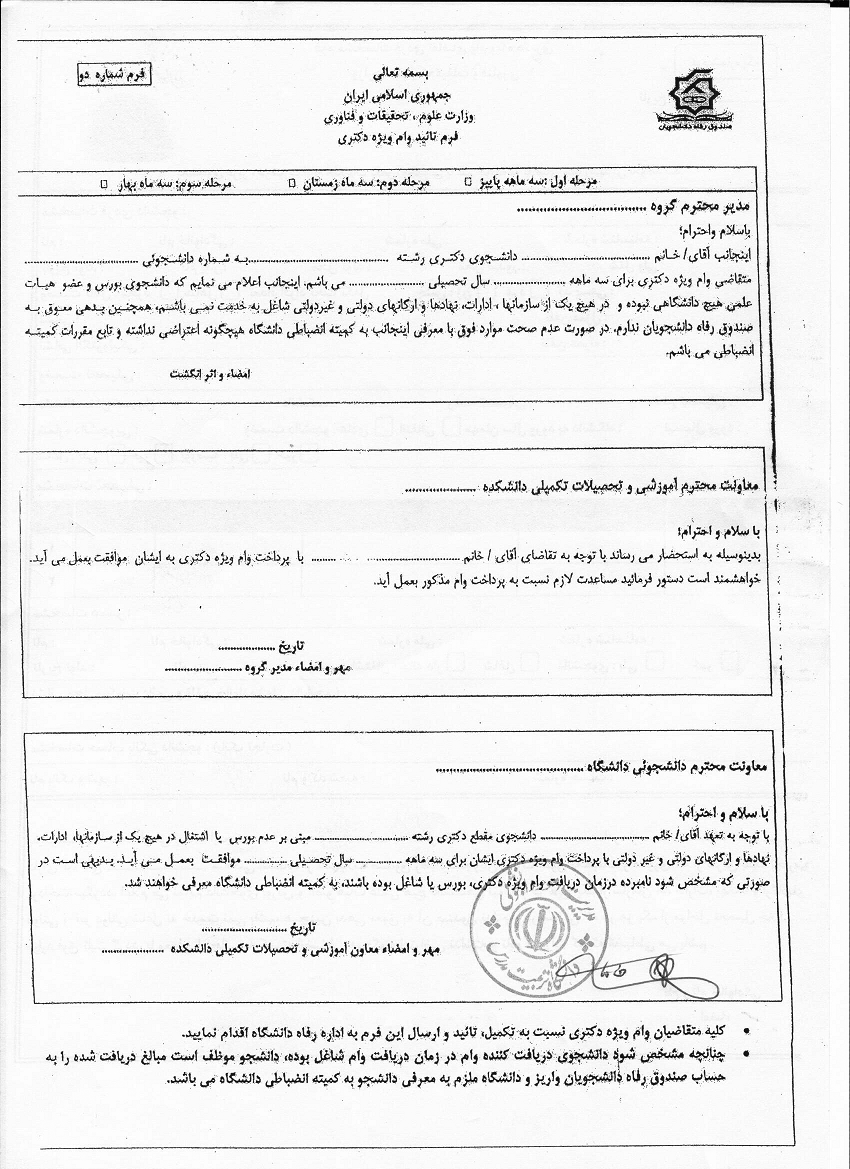 بسمه تعالی
فرم شماره دو
جمهوری اسلامی ایران
وزارت علوم ، تحقیقات و فناوری
فرم تائید وام ویژه دکتری
صندوق رفاه دانشجویان
مرحله اول :سه ماهه پاییز □ مرحله دوم: سه ماه زمستان □ مرحله سوم: سه ماه بهار □
مدیر محترم گروه ................................
باسلام واحترام؛
اینجانب آقای/ خانم ................................ دانشجوی دکتری رشته ................................به شماره دانشجوئی ................................
متقاضی وام ویژه دکتری برای سه ماهه ..................... سال تحصیلی ..................... می باشم. اینجانب اعلام می نمایم که دانشجوی بورس و عضو هیات
علمی هیچ دانشگاهی نبوده و در هیچ یک از سازمانها ، ادارات، نهادها و ارگانهای دولتی و غیردولتی شاغل به خدمت نمی باشم، همچنین بدهی معوق به
صندوق رفاه دانشجویان ندارم. در صورت عدم صحت موارد فوق با معرفی اینجانب به کمیته انضباطی دانشگاه هیچگونه اعتراضی نداشته و تابع مقررات کمیته
انضباطی می باشم.
امضاء و اثر انگشت
معاونت محترم آموزشی و تحصیلات تکمیلی دانشکده ....................
با سلام و احترام؛
بدینوسیله به استحضار می رساند با توجه به تقاضای آقای / خانم ................................ با پرداخت وام ویژه دکتری به ایشان موافقت بعمل می آید.
خواهشمند است دستور فرمائید مساعدت لازم نسبت به پرداخت وام مذکور بعمل آید.
تاریخ ..................
مهر و امضاء مدیر گروه ........................
معاونت محترم دانشجوئی دانشگاه ........................................
با سلام و احترام؛
با توجه به تعهد آقای/ خانم ................................ دانشجوی مقطع دکتری رشته ............................ مبنی بر عدم بورس یا اشتغال در هیچ یک از سازمانها، ادارات،
نهادها و ارگانهای دولتی و غیر دولتی با پرداخت وام ویژه دکتری ایشان برای سه ماهه .............. سال تحصیلی .............. موافقت بعمل می آید. بدیهی است در
صورتی که مشخص شود نامبرده درزمان دریافت وام ویژه دکتری، بورس یا شاغل بوده باشند، به کمیته انضباطی دانشگاه معرفی خواهند شد.
تاریخ ........................
مهر و امضاء معاون آموزشی و تحصیلات تکمیلی دانشکده ..................
دانشگاه تربیت مدرس
• کلیه متقاضیان وام ویژه دکتری نسبت به تکمیل، تائید و ارسال این فرم به اداره رفاه دانشگاه اقدام نمایید.
• چنانچه مشخص شود دانشجوی دریافت کننده وام در زمان دریافت وام شاغل بوده، دانشجو موظف است مبالغ دریافت شده را به
حساب صندوق رفاه دانشجویان واریز و دانشگاه ملزم به معرفی دانشجو به کمیته انضباطی دانشگاه می باشد.